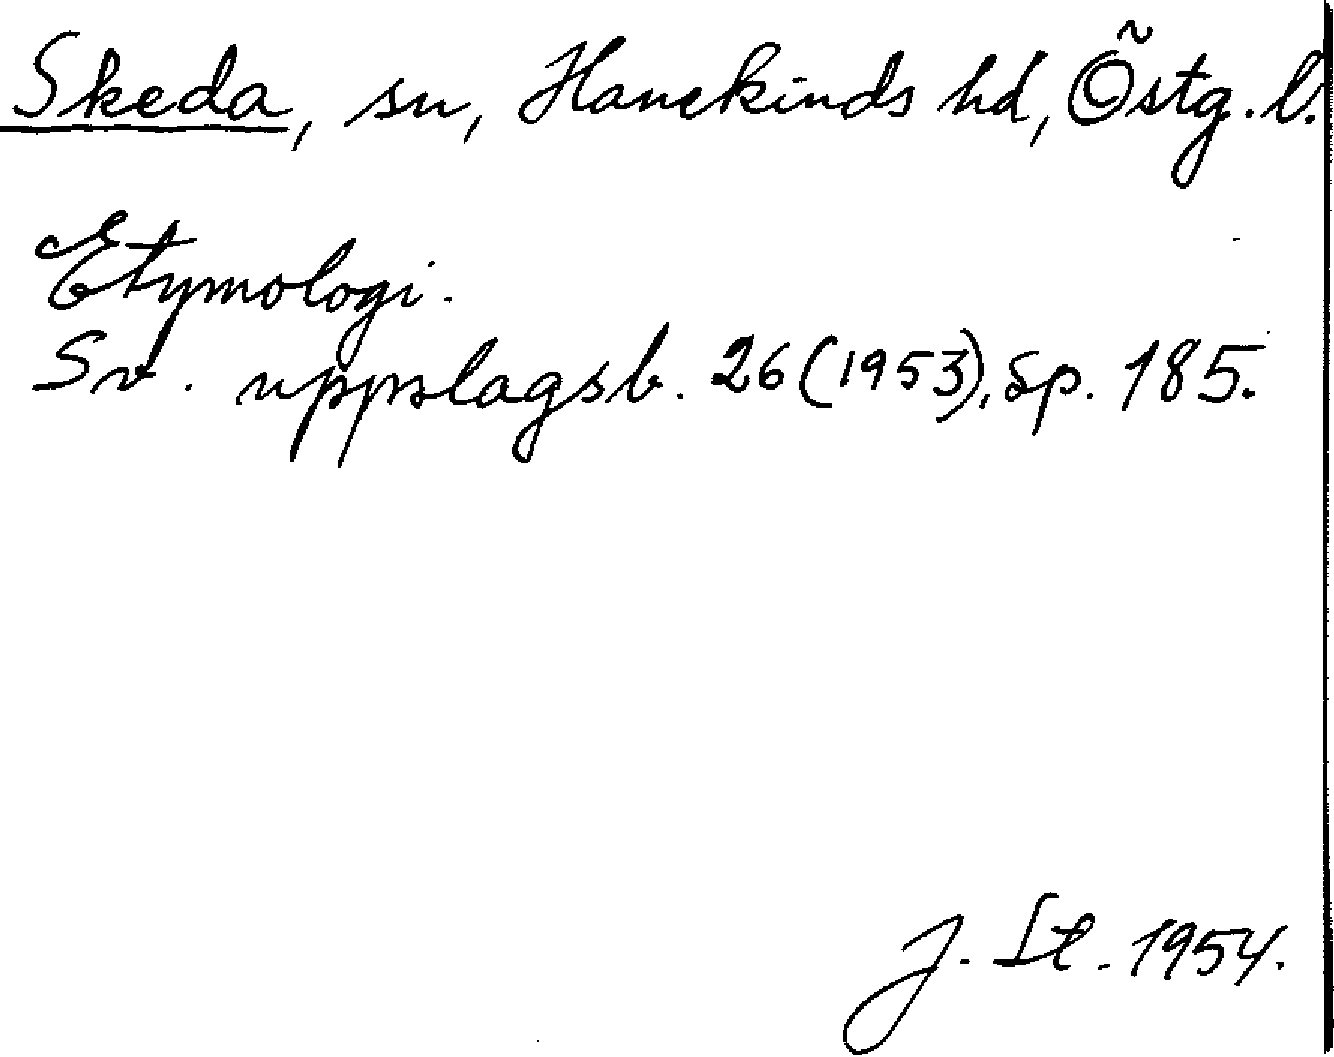 Skeda, sn, Hanekinds hd, Östg. l.
Etymologi.
Sv. uppslagsb. 26 (1953), sp. 185.
J. St. 1954.